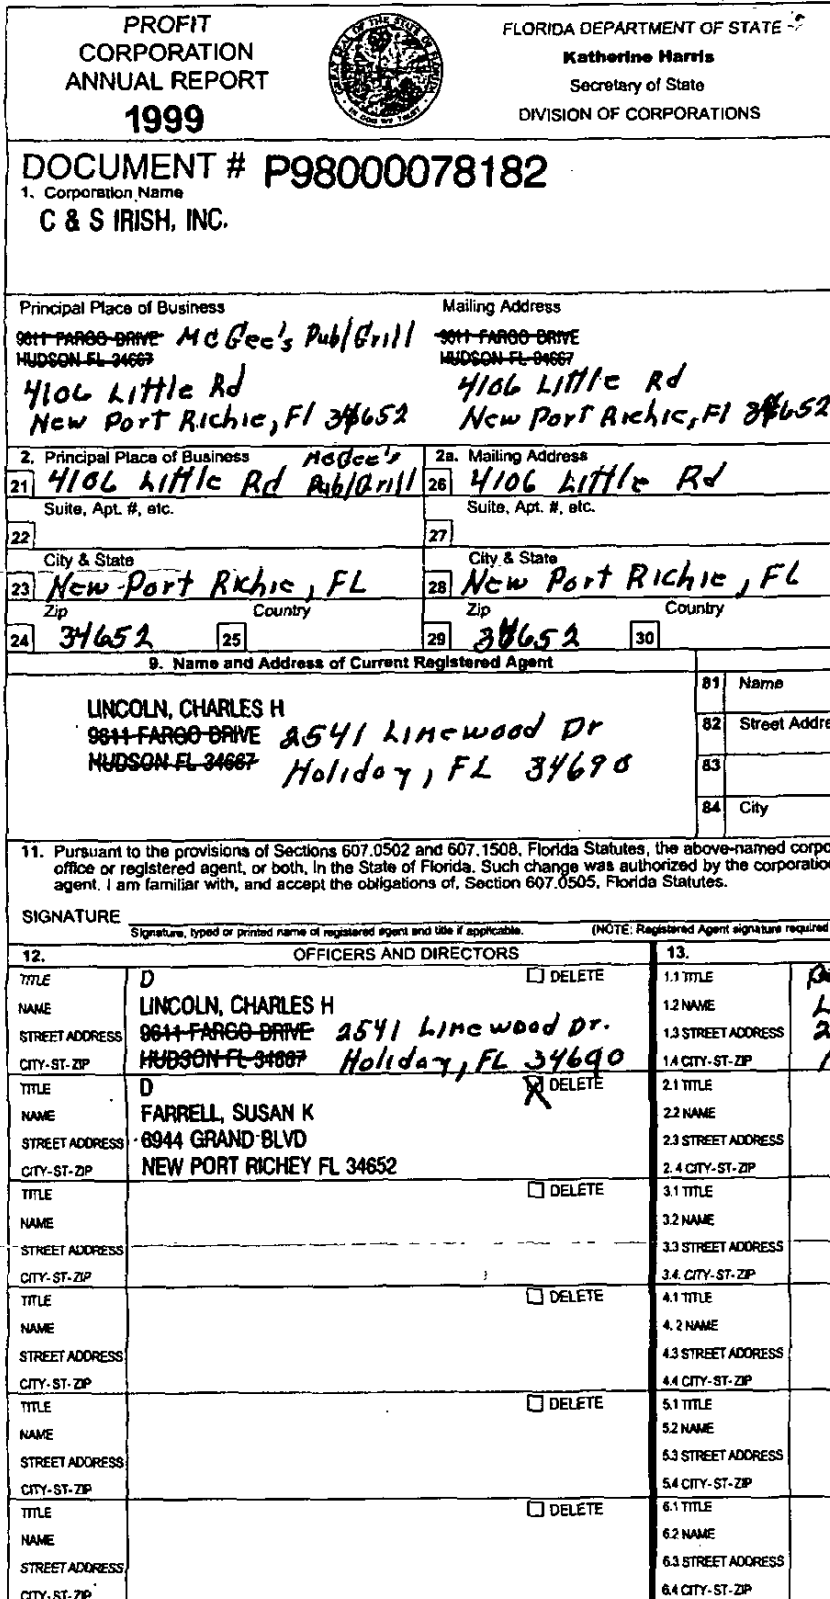 PROFIT
CORPORATION
ANNUAL REPORT
1999
GREAT SEAL OF THE STATE OF FLORIDA
IN GOD WE TRUST
FLORIDA DEPARTMENT OF STATE
Katherine Harris
Secretary of State
DIVISION OF CORPORATIONS
DOCUMENT # P98000078182
1. Corporation Name
C & S IRISH, INC.
Principal Place of Business
9611 FARGO DRIVE McGee's Pub/Grill
HUDSON FL 34667
4106 Little Rd
New Port Richie, Fl 34652
Mailing Address
9611 FARGO DRIVE
HUDSON FL 34667
4106 Little Rd
New Port Richie, Fl 34652
2. Principal Place of Business McGee's
21 4106 Little Rd Pub/Grill
2a. Mailing Address
26 4106 Little Rd
Suite, Apt. #, etc.
22
Suite, Apt. #, etc.
27
City & State
23 New Port Richie, FL
City & State
28 New Port Richie, FL
Zip Country
24 34652 25
Zip Country
29 34652 30
9. Name and Address of Current Registered Agent
LINCOLN, CHARLES H
9611 FARGO DRIVE 2541 Linewood Dr
HUDSON FL 34667 Holiday, FL 34690
81 Name
82 Street Addre
83
84 City
11. Pursuant to the provisions of Sections 607.0502 and 607.1508, Florida Statutes, the above-named corpo
office or registered agent, or both, in the State of Florida. Such change was authorized by the corporatio
agent. I am familiar with, and accept the obligations of, Section 607.0505, Florida Statutes.
SIGNATURE
Signature, typed or printed name of registered agent and title if applicable. (NOTE: Registered Agent signature required
12. OFFICERS AND DIRECTORS 13.
TITLE D DELETE
NAME LINCOLN, CHARLES H
STREET ADDRESS 9611 FARGO DRIVE 2541 Linewood Dr.
CITY-ST-ZIP HUDSON FL 34667 Holiday, FL 34690
1.1 TITLE
1.2 NAME L
1.3 STREET ADDRESS 2
1.4 CITY-ST-ZIP
TITLE D X DELETE
NAME FARRELL, SUSAN K
STREET ADDRESS 6944 GRAND BLVD
CITY-ST-ZIP NEW PORT RICHEY FL 34652
2.1 TITLE
2.2 NAME
2.3 STREET ADDRESS
2.4 CITY-ST-ZIP
TITLE DELETE
NAME
STREET ADDRESS
CITY-ST-ZIP
3.1 TITLE
3.2 NAME
3.3 STREET ADDRESS
3.4. CITY-ST-ZIP
TITLE DELETE
NAME
STREET ADDRESS
CITY-ST-ZIP
4.1 TITLE
4.2 NAME
4.3 STREET ADDRESS
4.4 CITY-ST-ZIP
TITLE DELETE
NAME
STREET ADDRESS
CITY-ST-ZIP
5.1 TITLE
5.2 NAME
5.3 STREET ADDRESS
5.4 CITY-ST-ZIP
TITLE DELETE
NAME
STREET ADDRESS
CITY-ST-ZIP
6.1 TITLE
6.2 NAME
6.3 STREET ADDRESS
6.4 CITY-ST-ZIP